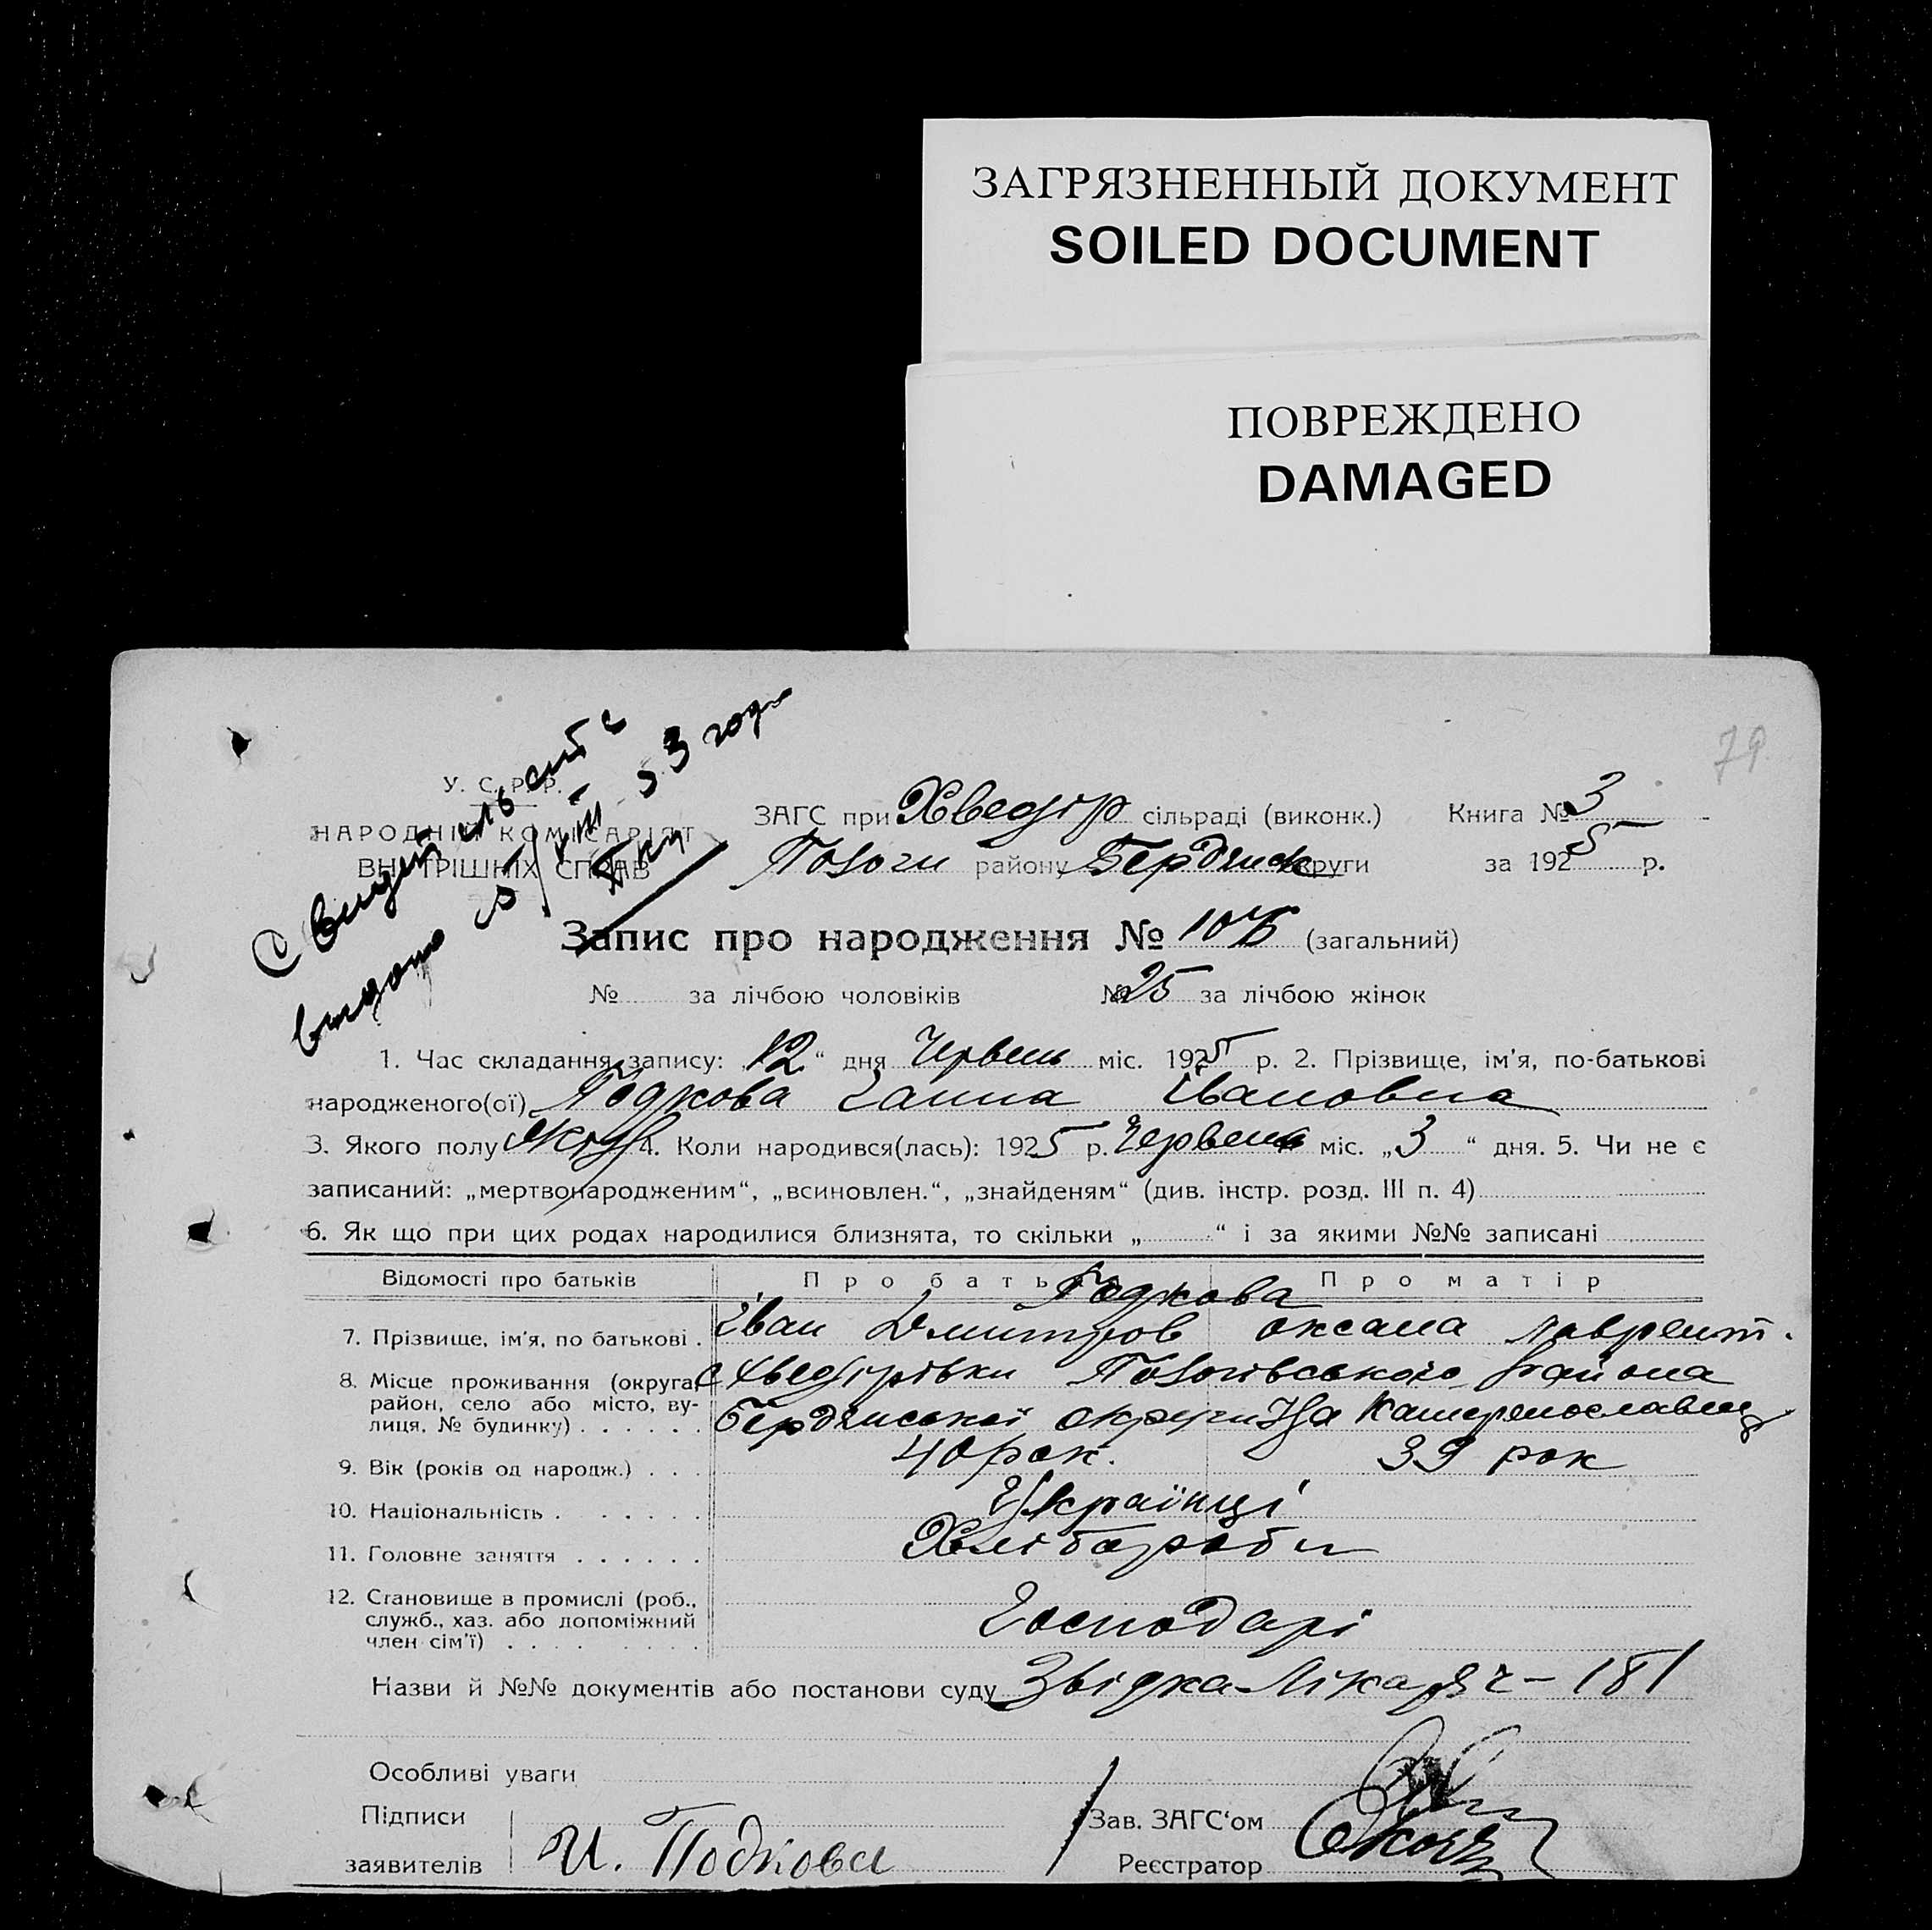 ЗАГРЯЗНЕННЫЙ ДОКУМЕНТ
SOILED DOCUMENT
ПОВРЕЖДЕНО
DAMAGED
79
У. С. Р. Р.
НАРОДНІЙ КОМІСАРІЯТ
ВНУТРІШНІХ СПРАВ
выдано
ЗАГС при Хведір сільраді (виконк.) Книга № 3
Пологи району Бердянск округи за 1925 р.
Запис про народження № (загальний)
№ за лічбою чоловіків № 25 за лічбою жінок
1. Час складання запису: 12 “ дня Червень міс. 1925 р. 2. Прізвище, ім'я, по-батькові
народженого(ої) Подкова Ганна Івановна
3. Якого полу 4. Коли народився(лась): 1925 р. Червень міс. „3 “ дня. 5. Чи не є
записаний: „мертвонародженим“, „всиновлен.“, „знайденям“ (див. інстр. розд. III п. 4)
6. Як що при цих родах народилися близнята, то скільки „ “ і за якими №№ записані
Відомості про батьків Про батька Про матір
Подкова
7. Прізвище, ім'я, по батькові . Іван Дмитров оксана лаврент.
8. Місце проживання (округа, с Хведірівки Пологівського района
район, село або місто, ву-
лиця, № будинку) . . . . . . Бердянської округи На Катеренославщ
9. Вік (років од народж.) . . . 40 рок. 39 рок
10. Національність . . . . . . Українці
11. Головне заняття . . . . . . Хлібороби
12. Становище в промислі (роб.,
служб., хаз. або допоміжний
член сім'ї) . . . . . . . . Господарі
Назви й №№ документів або постанови суду Звідка Лікаря ч – 181
Особливі уваги
Підписи
заявителів И. Подкова
Зав. ЗАГС‘ом
Реєстратор